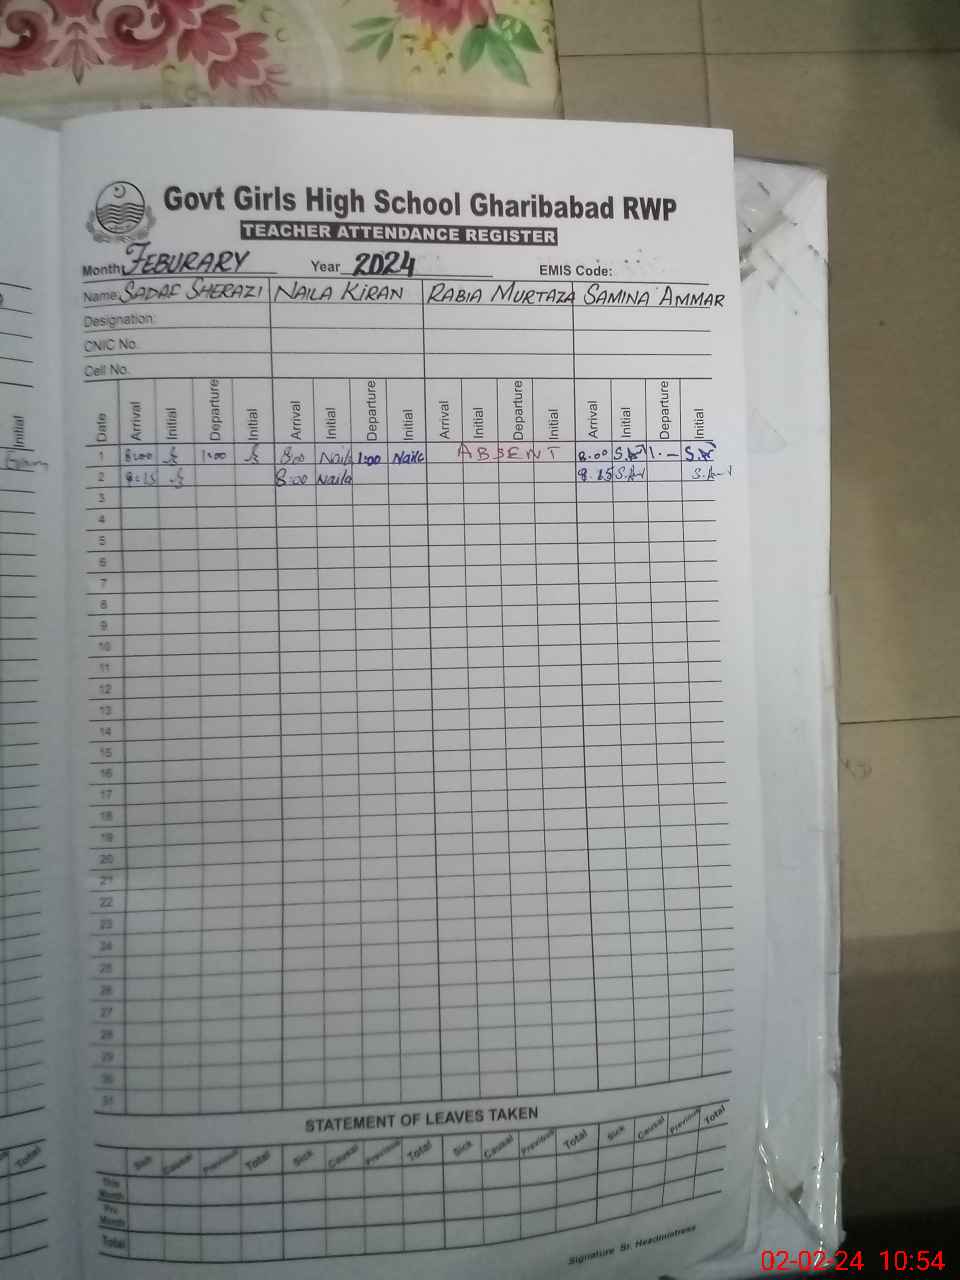 Govt Girls High School Gharibabad RWP
TEACHER ATTENDANCE REGISTER
Month: FEBURARY Year 2024 EMIS Code:
Name: SADAF SHERAZI NAILA KIRAN RABIA MURTAZA SAMINA AMMAR
Designation:
CNIC No.
Cell No.
Date Arrival Initial Departure Initial Arrival Initial Departure Initial Arrival Initial Departure Initial Arrival Initial Departure Initial
Initial
1 8:00 1:00 8:00 Naila 1:00 Naila ABSENT 8.00 S.A 1.- S.A
2 8:15 8:00 Naila 8.15 S.A S.A
3
4
5
6
7
8
9
10
11
12
13
14
15
16
17
18
19
20
21
22
23
24
25
26
27
28
29
30
31
STATEMENT OF LEAVES TAKEN
Sick Causal Previous Total Sick Causal Previous Total Sick Causal Previous Total Sick Causal Previous Total
Total
This Month
Pre Month
Total
Signature Sr. Headmistress
02-02-24 10:54